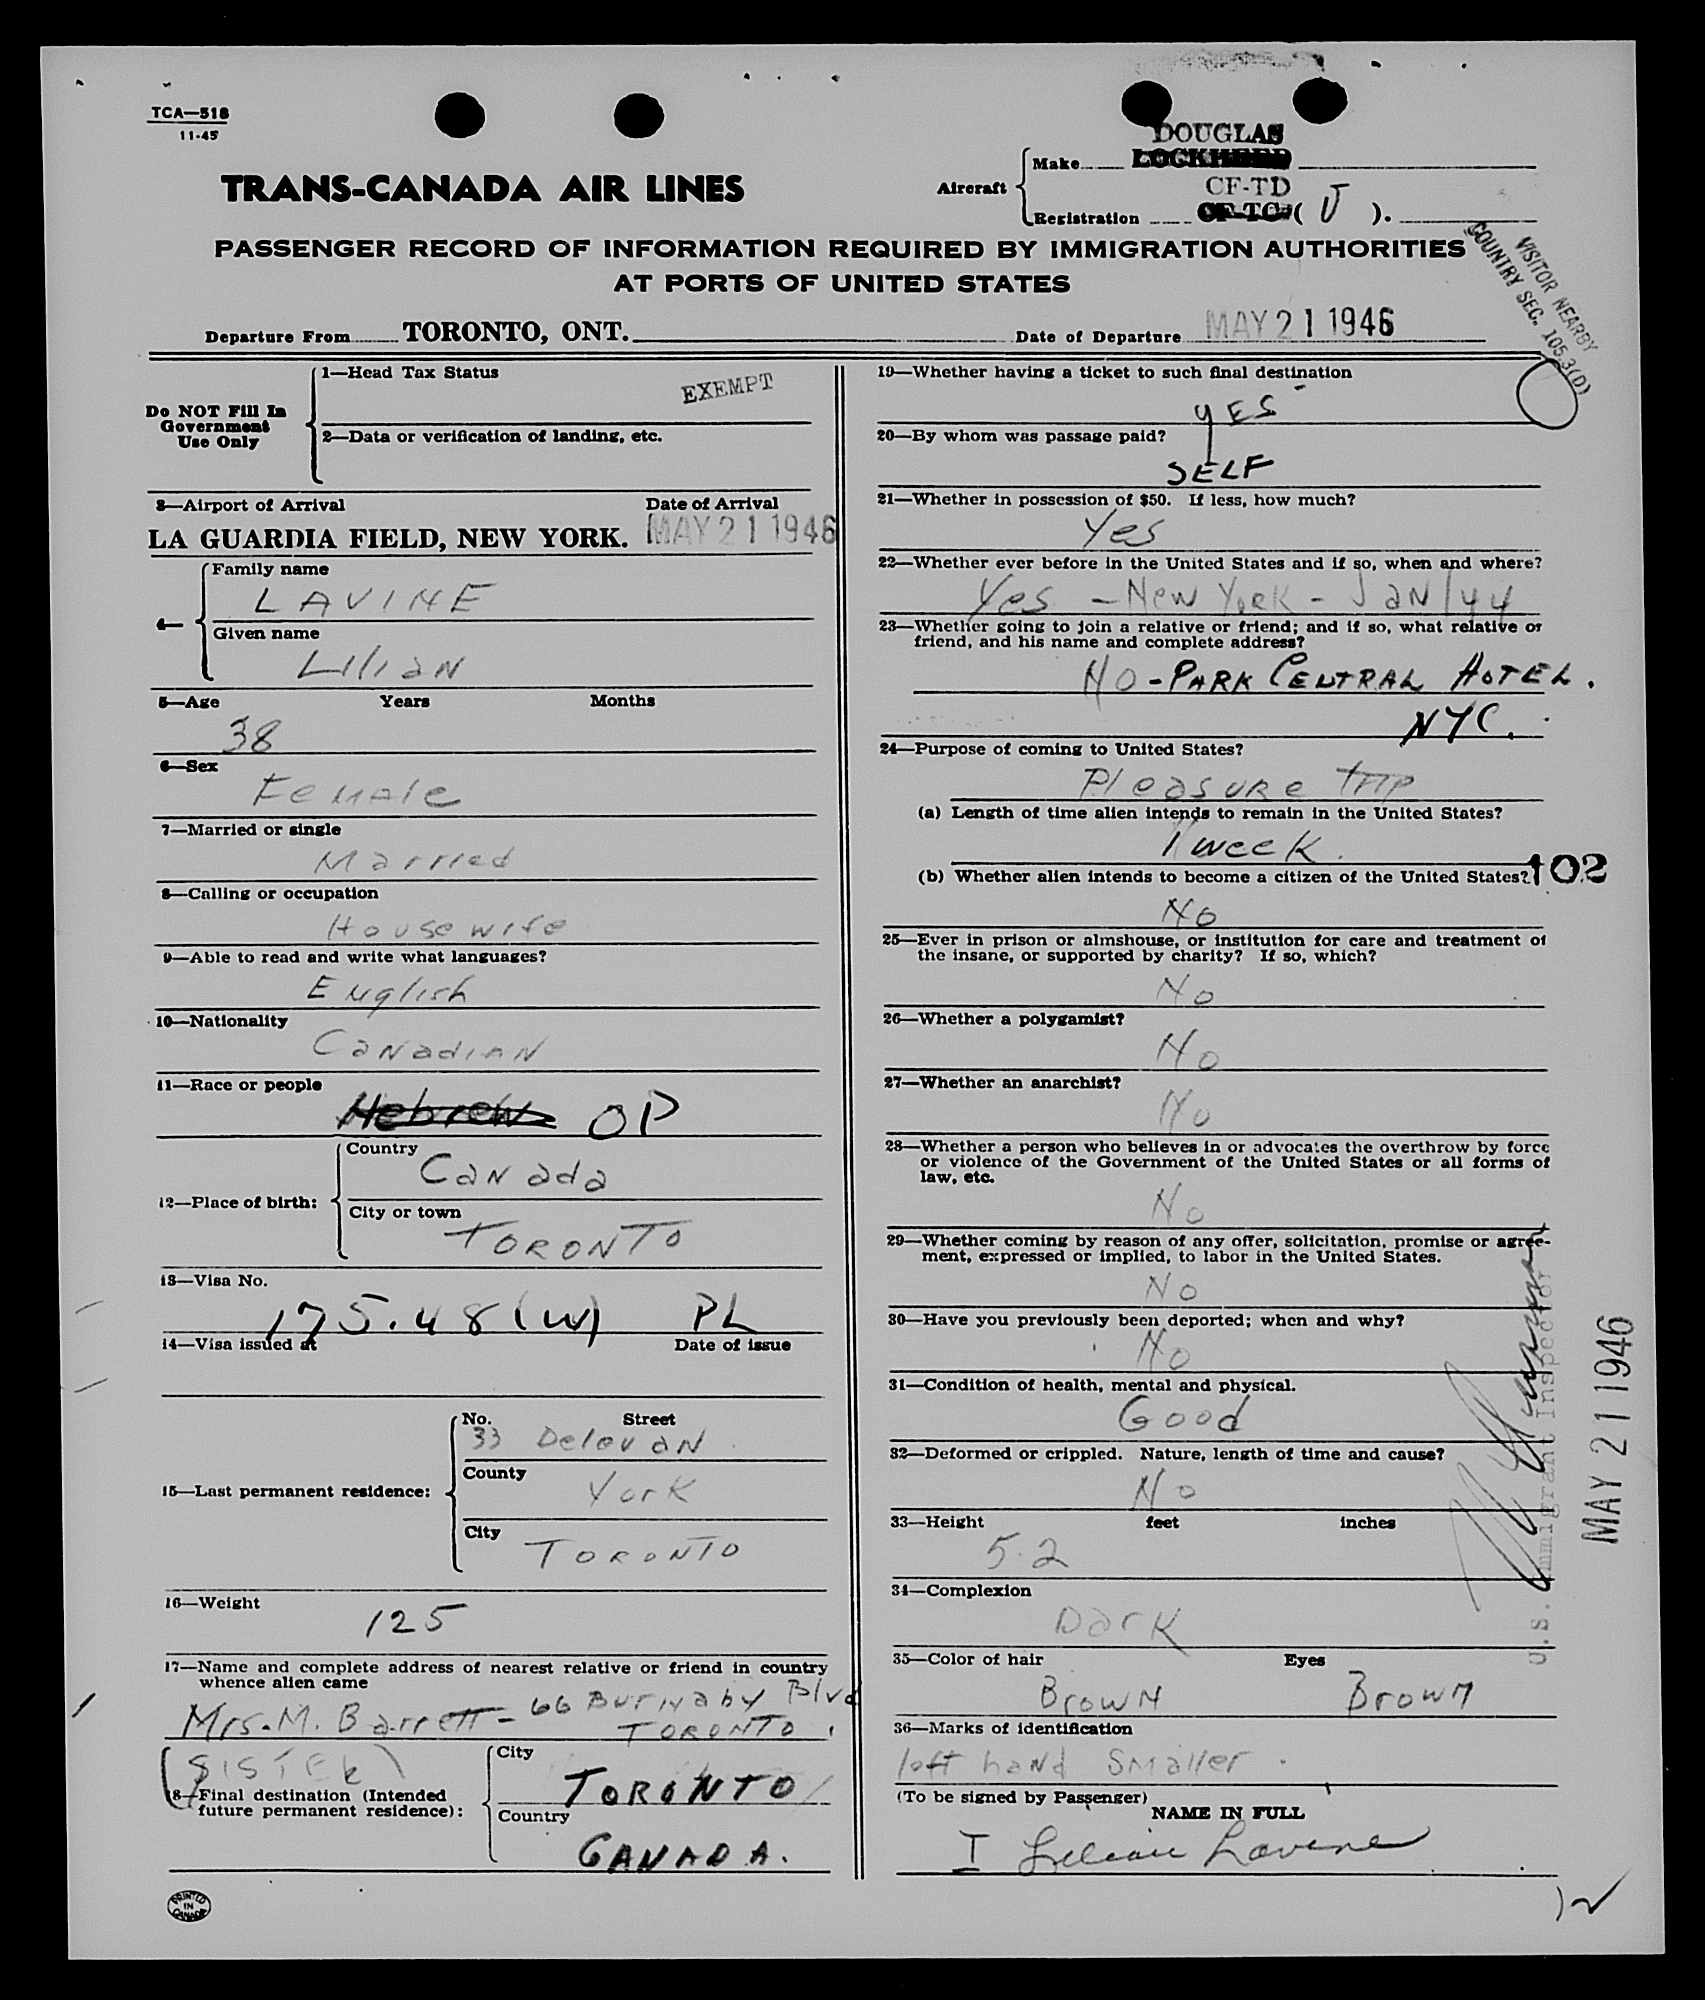 TCA—518
11-45
DOUGLAS
Aircraft
Make LOCKHEED
CF-TD
Registration CF-TC- ( J ).
TRANS-CANADA AIR LINES
PASSENGER RECORD OF INFORMATION REQUIRED BY IMMIGRATION AUTHORITIES
AT PORTS OF UNITED STATES
VISITOR NEARBY
COUNTRY SEC. 105.3(D)
Departure From TORONTO, ONT. Date of Departure MAY 21 1946
Do NOT Fill In
Government
Use Only
1—Head Tax Status
EXEMPT
2—Data or verification of landing, etc.
3—Airport of Arrival Date of Arrival
LA GUARDIA FIELD, NEW YORK. MAY 21 1946
4—
Family name
LAVINE
Given name
Lilian
5—Age Years Months
38
6—Sex
Female
7—Married or single
Married
8—Calling or occupation
Housewife
9—Able to read and write what languages?
English
10—Nationality
Canadian
11—Race or people
Hebrew OP
12—Place of birth:
Country
Canada
City or town
TORONTO
13—Visa No.
175.48 (W) PL
14—Visa issued at Date of issue
15—Last permanent residence:
No. Street
33 Delovan
County
York
City
TORONTO
16—Weight
125
17—Name and complete address of nearest relative or friend in country
whence alien came
Mrs. M. Barrett - 66 Burnaby Blvd
TORONTO
(SISTER)
18—Final destination (Intended
future permanent residence):
City
TORONTO
Country
CANADA.
PRINTED
IN
CANADA
19—Whether having a ticket to such final destination
YES
20—By whom was passage paid?
SELF
21—Whether in possession of $50. If less, how much?
Yes
22—Whether ever before in the United States and if so, when and where?
Yes - New York - Jan/44
23—Whether going to join a relative or friend; and if so, what relative or
friend, and his name and complete address?
NO - PARK CENTRAL HOTEL.
NYC.
24—Purpose of coming to United States?
Pleasure trip
(a) Length of time alien intends to remain in the United States?
1 week.
(b) Whether alien intends to become a citizen of the United States?
102
No
25—Ever in prison or almshouse, or institution for care and treatment of
the insane, or supported by charity? If so, which?
No
26—Whether a polygamist?
No
27—Whether an anarchist?
No
28—Whether a person who believes in or advocates the overthrow by force
or violence of the Government of the United States or all forms of
law, etc.
No
29—Whether coming by reason of any offer, solicitation, promise or agree-
ment, expressed or implied, to labor in the United States.
No
30—Have you previously been deported; when and why?
No
31—Condition of health, mental and physical.
Good
32—Deformed or crippled. Nature, length of time and cause?
No
33—Height feet inches
5.2
34—Complexion
Dark
35—Color of hair Eyes
Brown Brown
36—Marks of identification
left hand smaller.
(To be signed by Passenger)
NAME IN FULL
I Lilian Lavine
U.S. Immigrant Inspector
MAY 21 1946